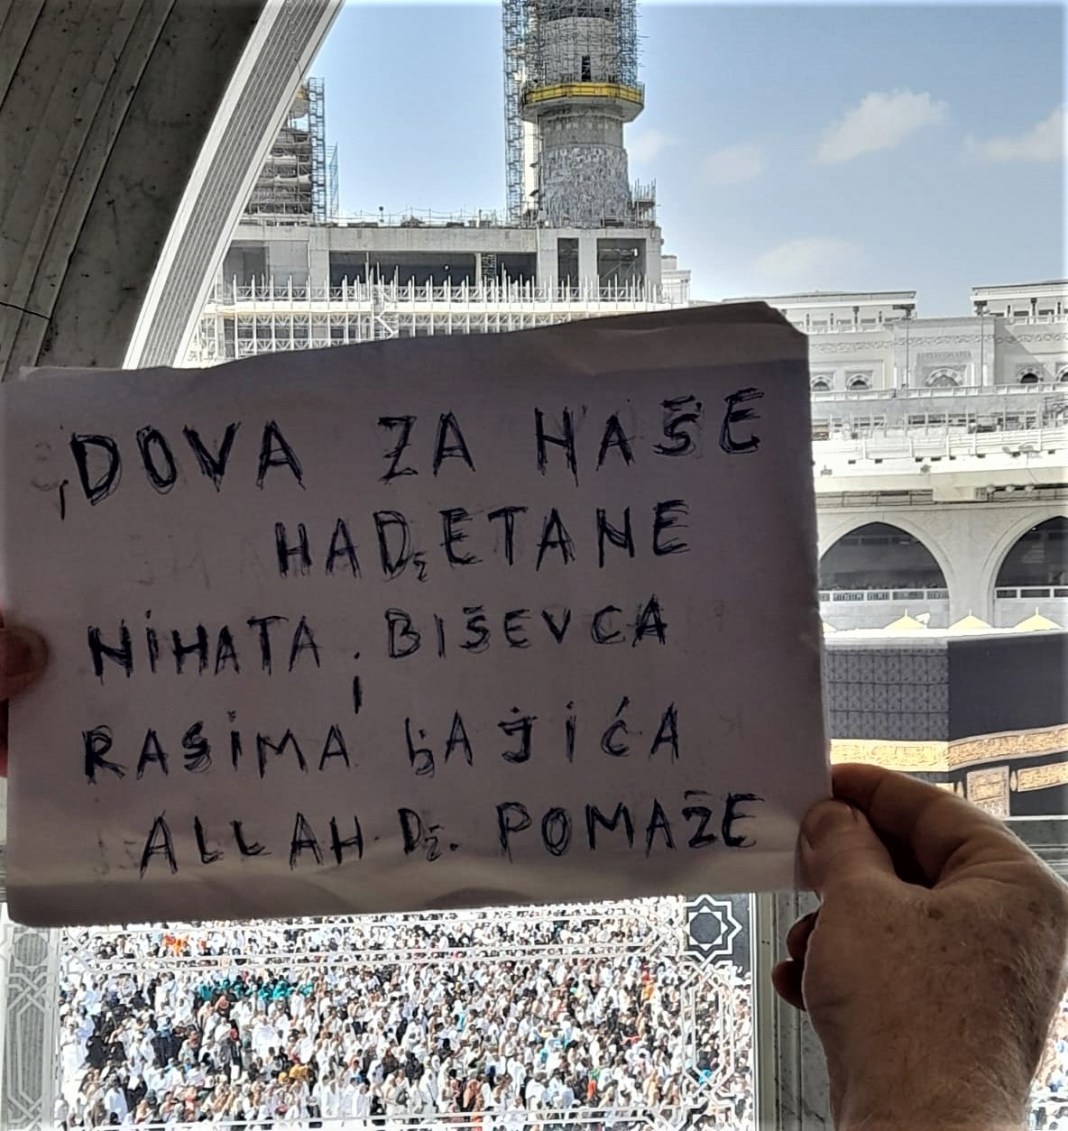 DOVA ZA NAŠE
HADzETANE
NIHATA, BIŠEVCA
RASIMA ђAJIĆA
ALLAH Dž. POMAŽE